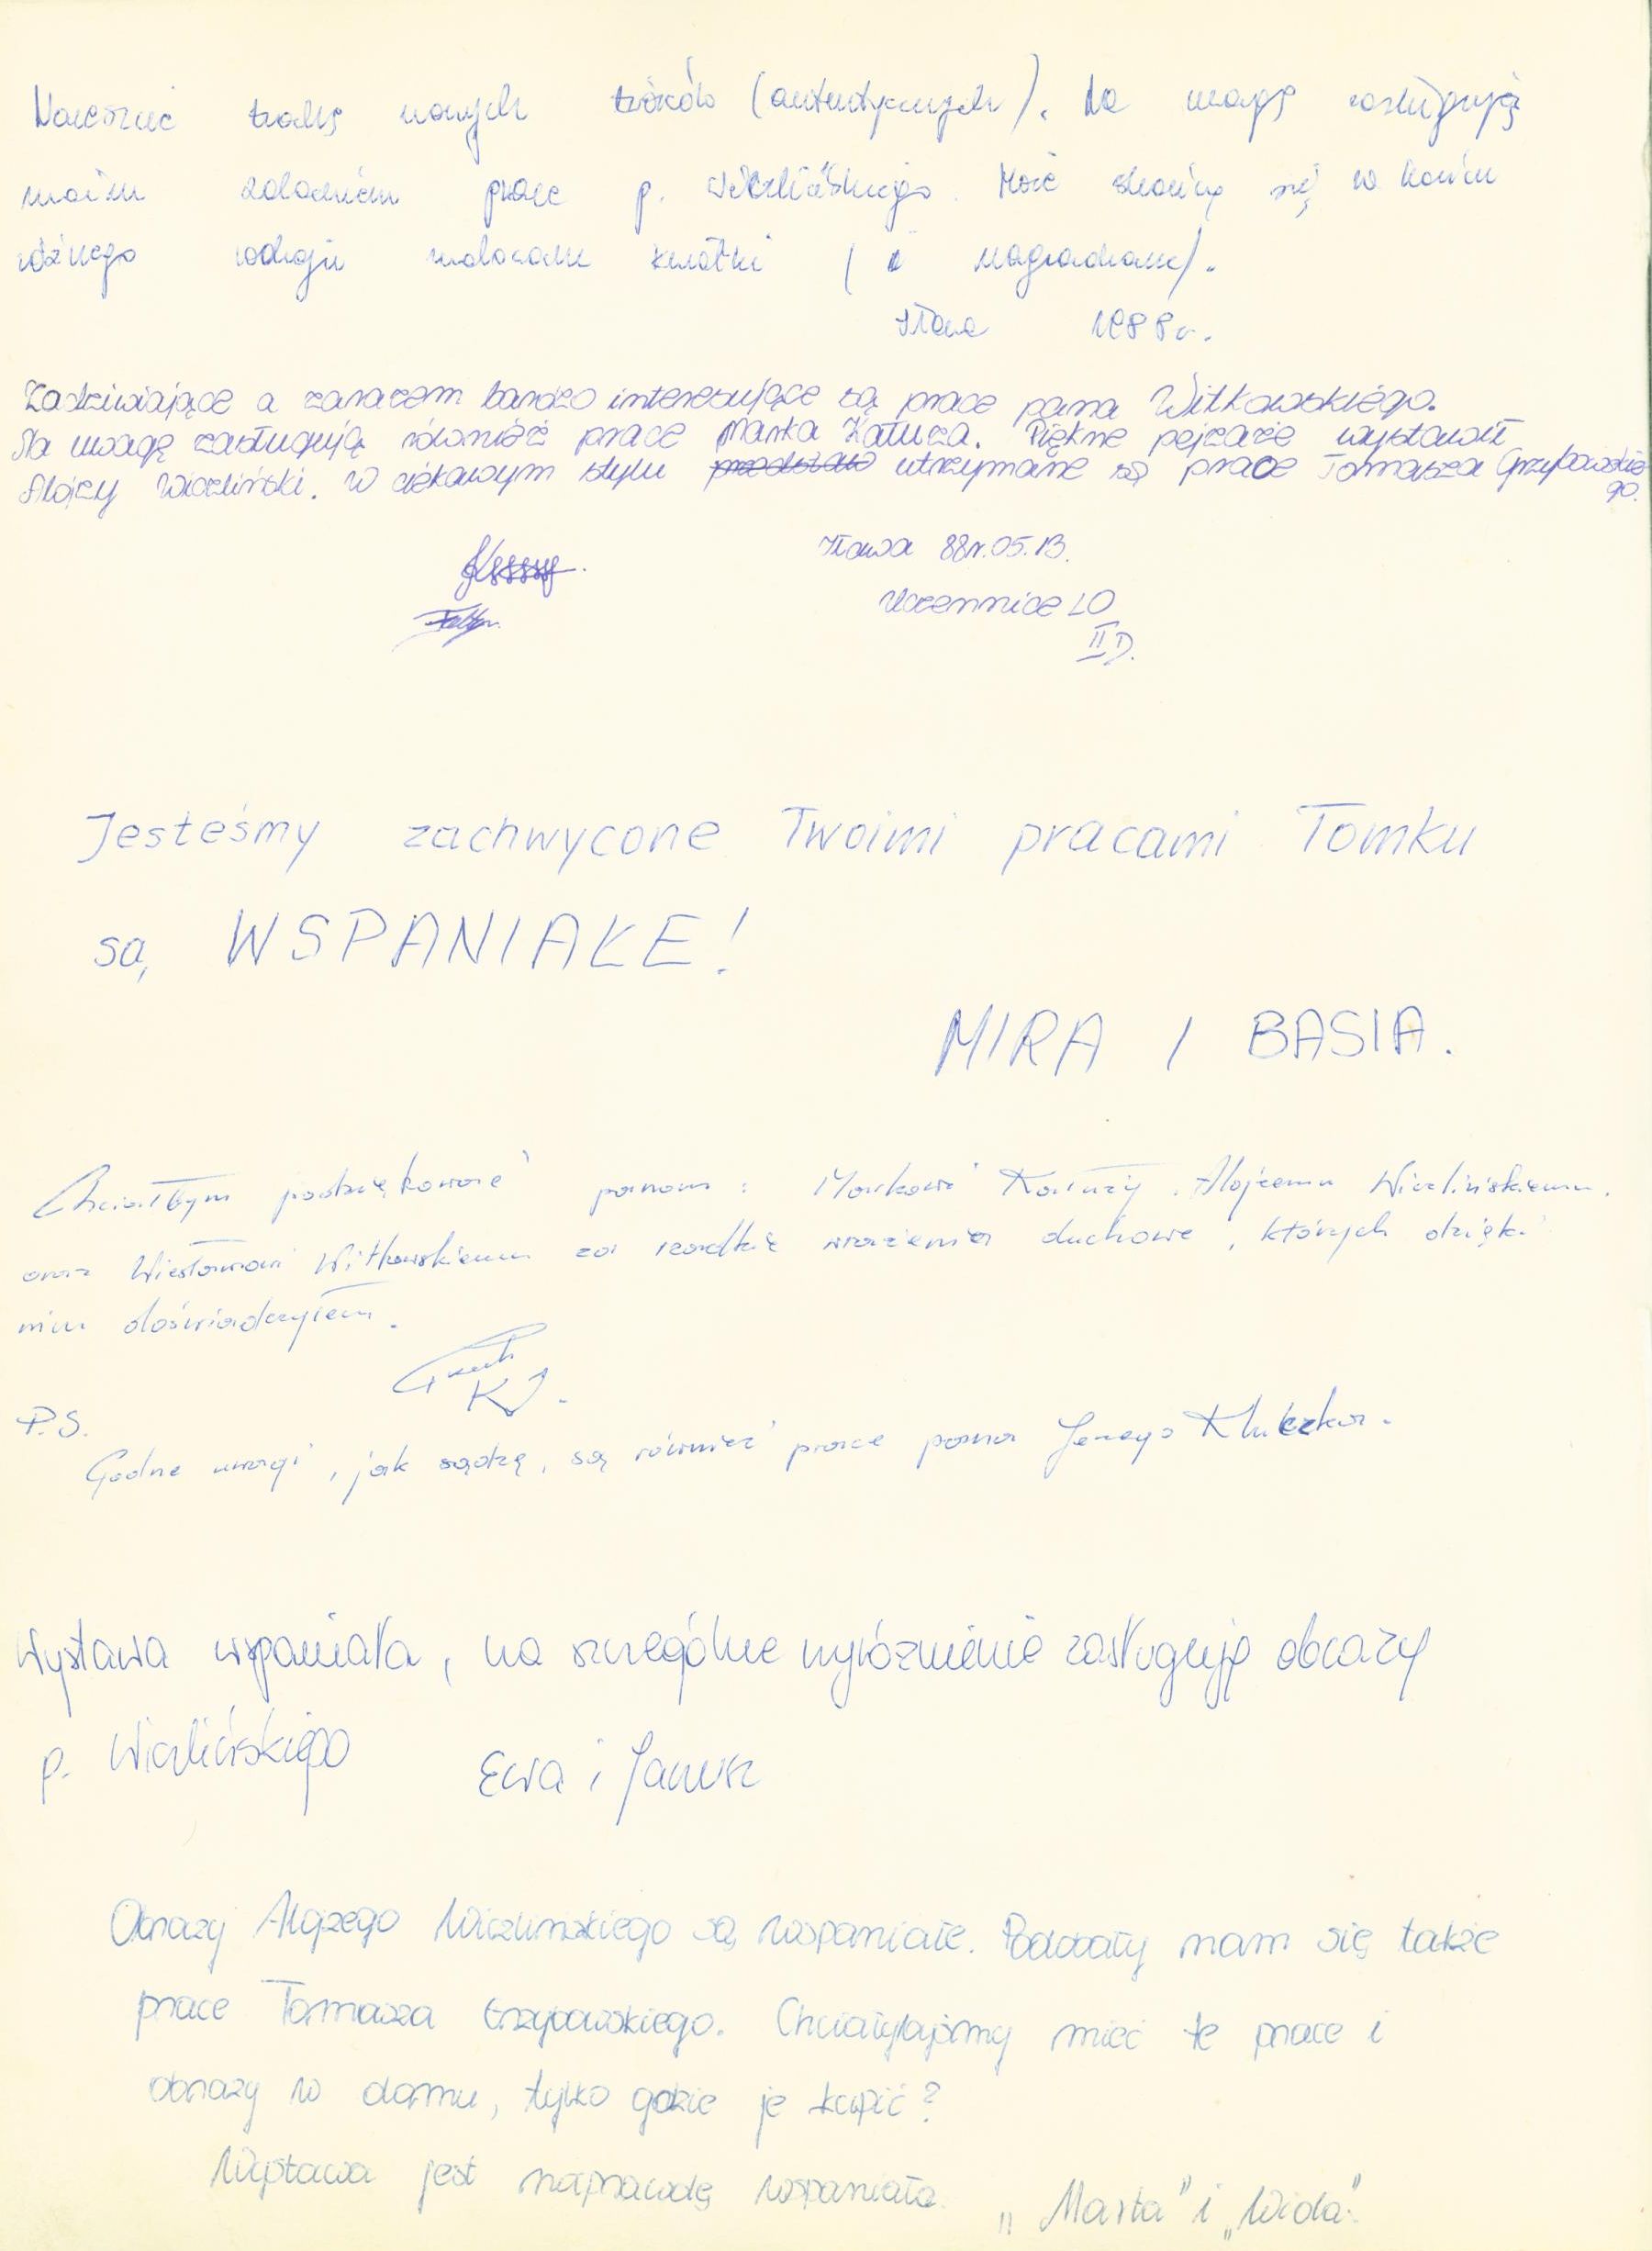 Nareszcie trochę nowych twórców (autentycznych). Na uwagę zasługują
moim zdaniem prace p. Wiczlińskiego. Może skończą się w końcu
różnego rodzaju malowane kwiatki ( i nagradzane).
Iława 1988r.
Zadziwiające a zarazem bardzo interesujące są prace pana Witkowskiego.
Na uwagę zasługują również prace Marka Kałuża. Piękne pejzaże wystawił
Alojzy Wiczliński. W ciekawym stylu utrzymane są prace Tomasza Grzybowskie-
go.
Iława 88r.05.13.
Uczennice LO
II D.
Jesteśmy zachwycone Twoimi pracami Tomku
są WSPANIAŁE!
MIRA I BASIA.
Chciałbym podziękować panom: Markowi Kałuży, Alojzemu Wiczlińskiemu,
oraz Wiesławowi Witkowskiemu za rzadkie wrażenia duchowe, których dzięki
nim doświadczyłem.
P.S.
Godne uwagi, jak sądzę, są również prace pana Jerzego Kluczka.
Wystawa wspaniała, na szczególne wyróżnienie zasługują obrazy
p. Wiczlińskiego Ewa i Janusz
Obrazy Alojzego Wiczlinskiego są wspaniałe. Podobały nam się także
prace Tomasza Grzybowskiego. Chciałybyśmy mieć te prace i
obrazy w domu, tylko gdzie je kupić?
Wystawa jest naprawdę wspaniała. „Marta" i „Wida".